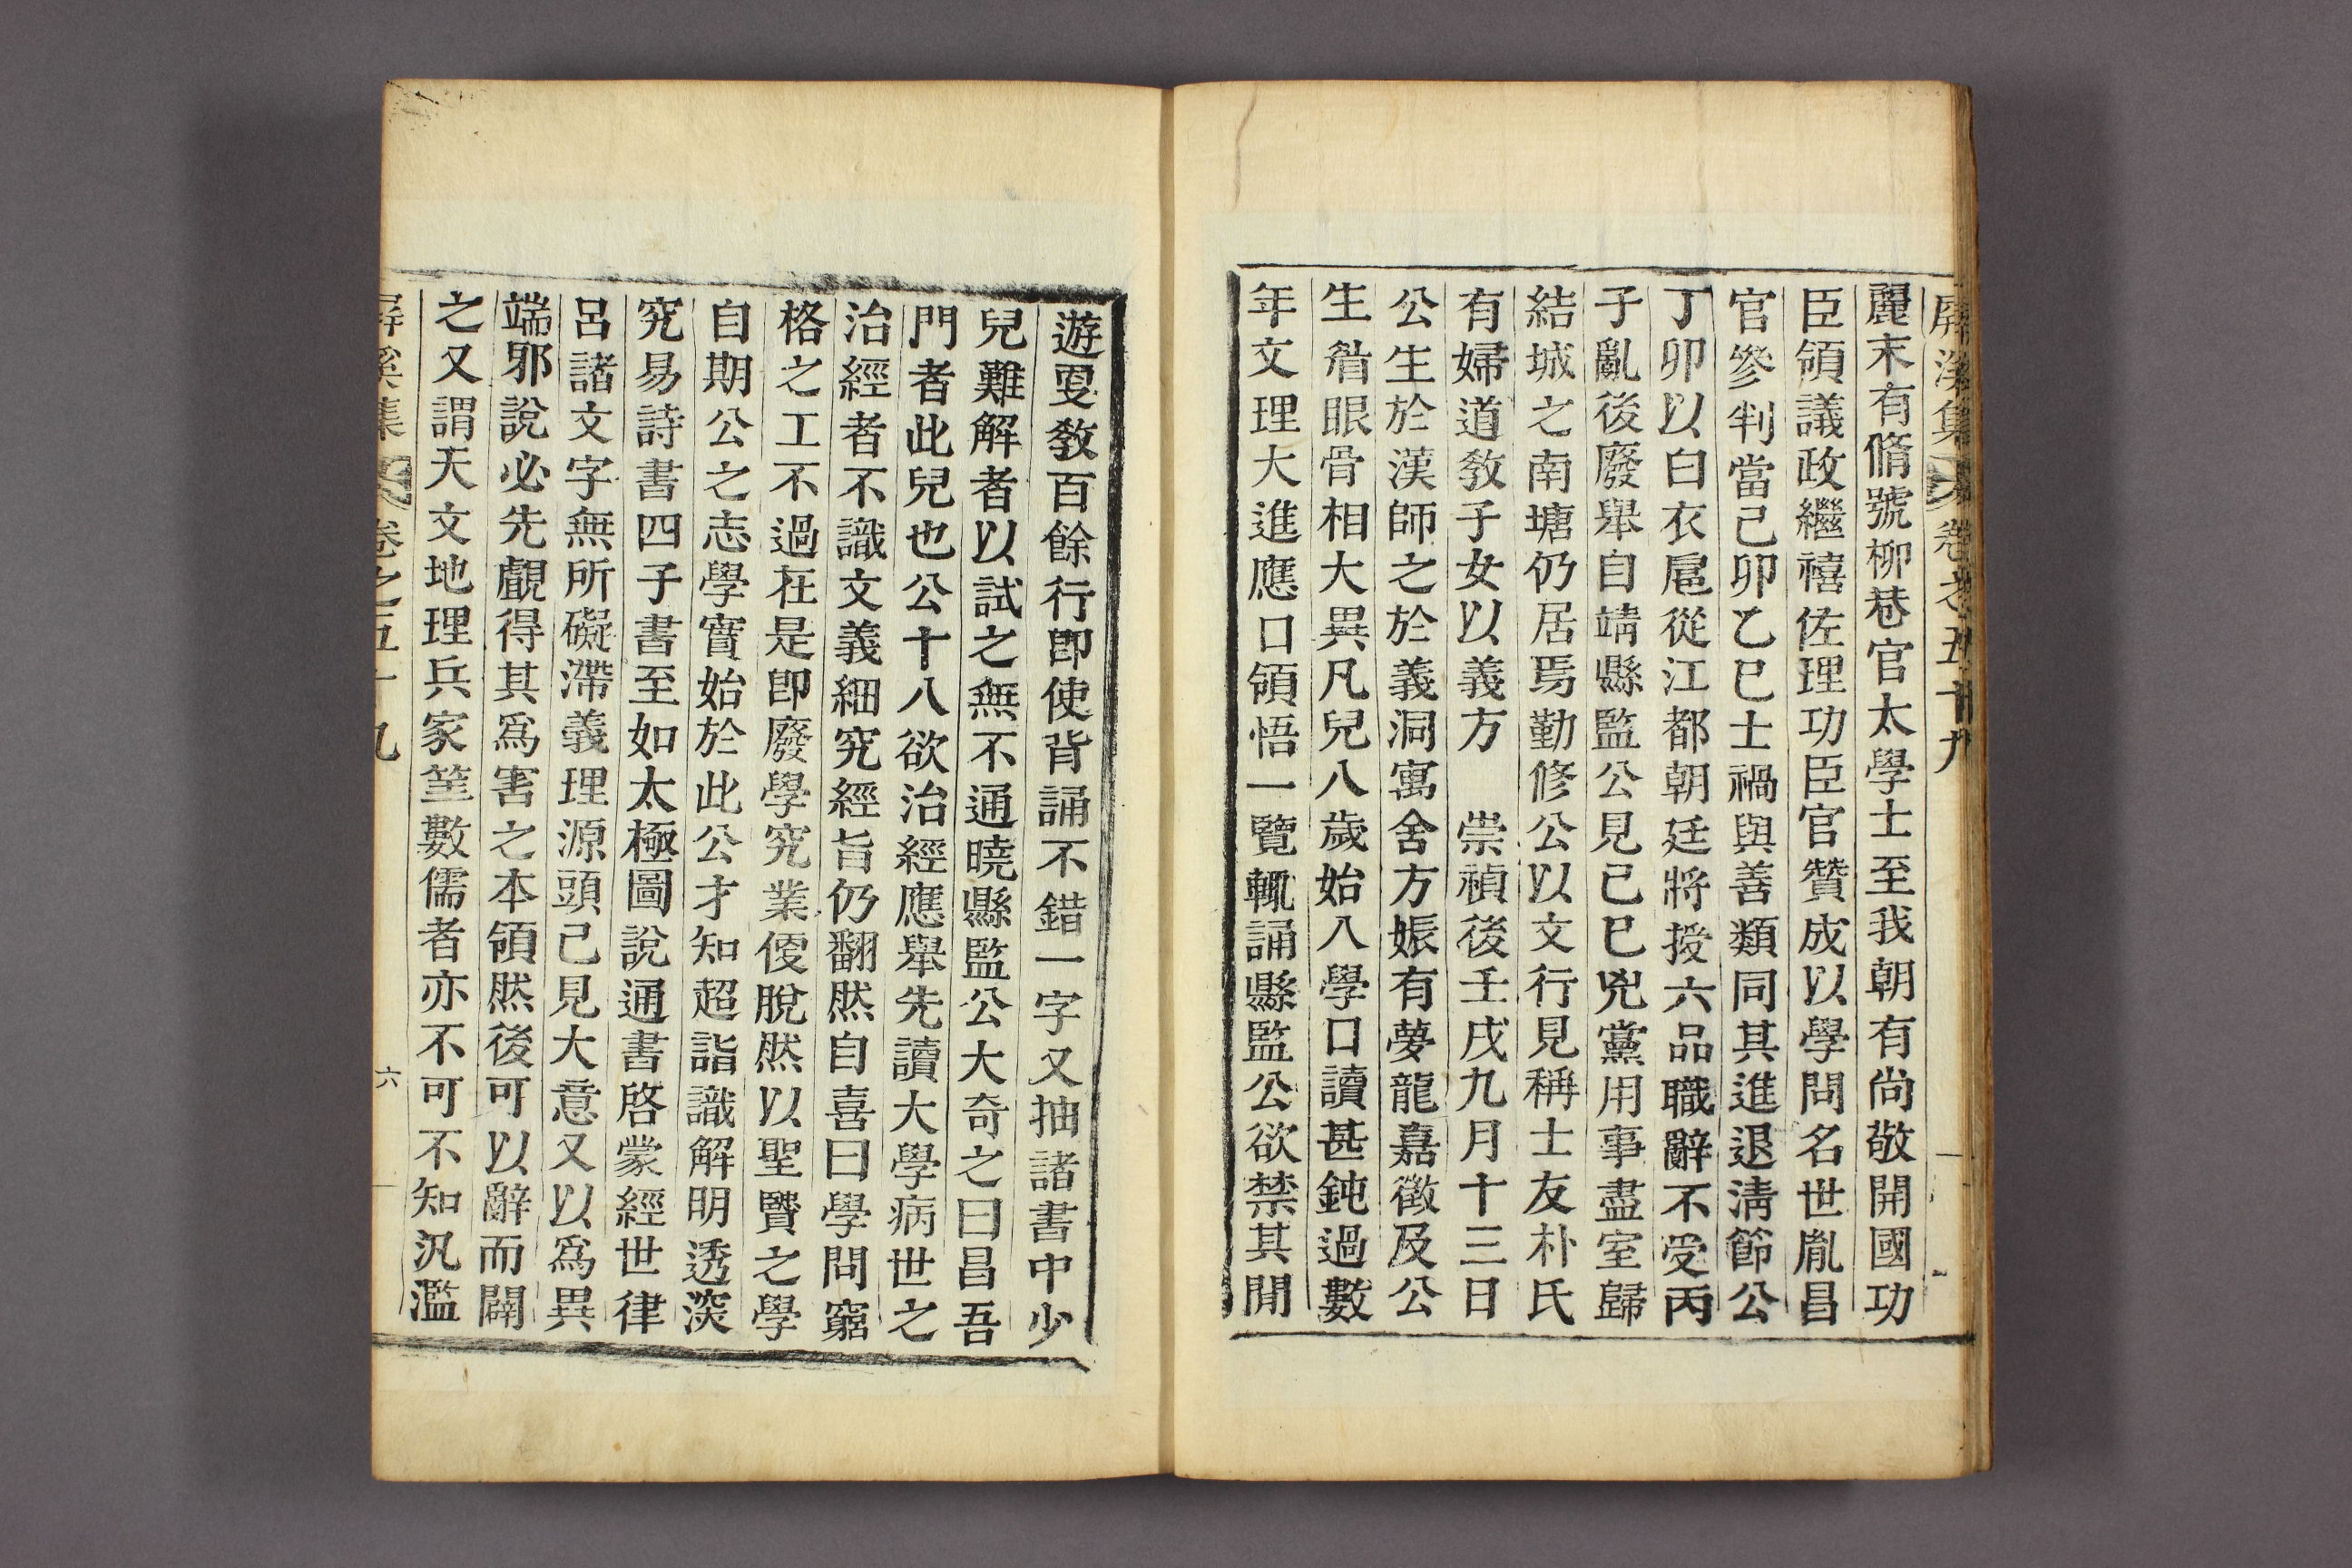 屛溪集 卷之五十九
麗末有脩號柳巷官太學士至我朝有尚敬開國功
臣領議政繼禧佐理功臣官贊成以學問名世胤昌
官參判當己卯乙巳士禍與善類同其進退淸節公
丁卯以白衣扈從江都朝廷將授六品職辭不受丙
子亂後廢舉自靖縣監公見己巳兇黨用事盡室歸
結城之南塘仍居焉勤修公以文行見稱士友朴氏
有婦道敎子女以義方 崇禎後壬戌九月十三日
公生於漢師之於義洞寓舍方娠有夢龍嘉徵及公
生眉眼骨相大異凡兒八歲始入學口讀甚鈍過數
年文理大進應口領悟一覽輒誦縣監公欲禁其閒
遊更敎百餘行卽使背誦不錯一字又抽諸書中少
兒難解者以試之無不通曉縣監公大奇之曰昌吾
門者此兒也公十八欲治經應舉先讀大學病世之
治經者不識文義細究經旨仍翻然自喜曰學問窮
格之工不過在是卽廢學究業便脫然以聖賢之學
自期公之志學實始於此公才知超詣識解明透深
究易詩書四子書至如太極圖說通書啓蒙經世律
呂諸文字無所礙滯義理源頭已見大意又以爲異
端邪說必先覰得其爲害之本領然後可以辭而闢
之又謂天文地理兵家筮數儒者亦不可不知汎濫
屛溪集 卷之五十九 六